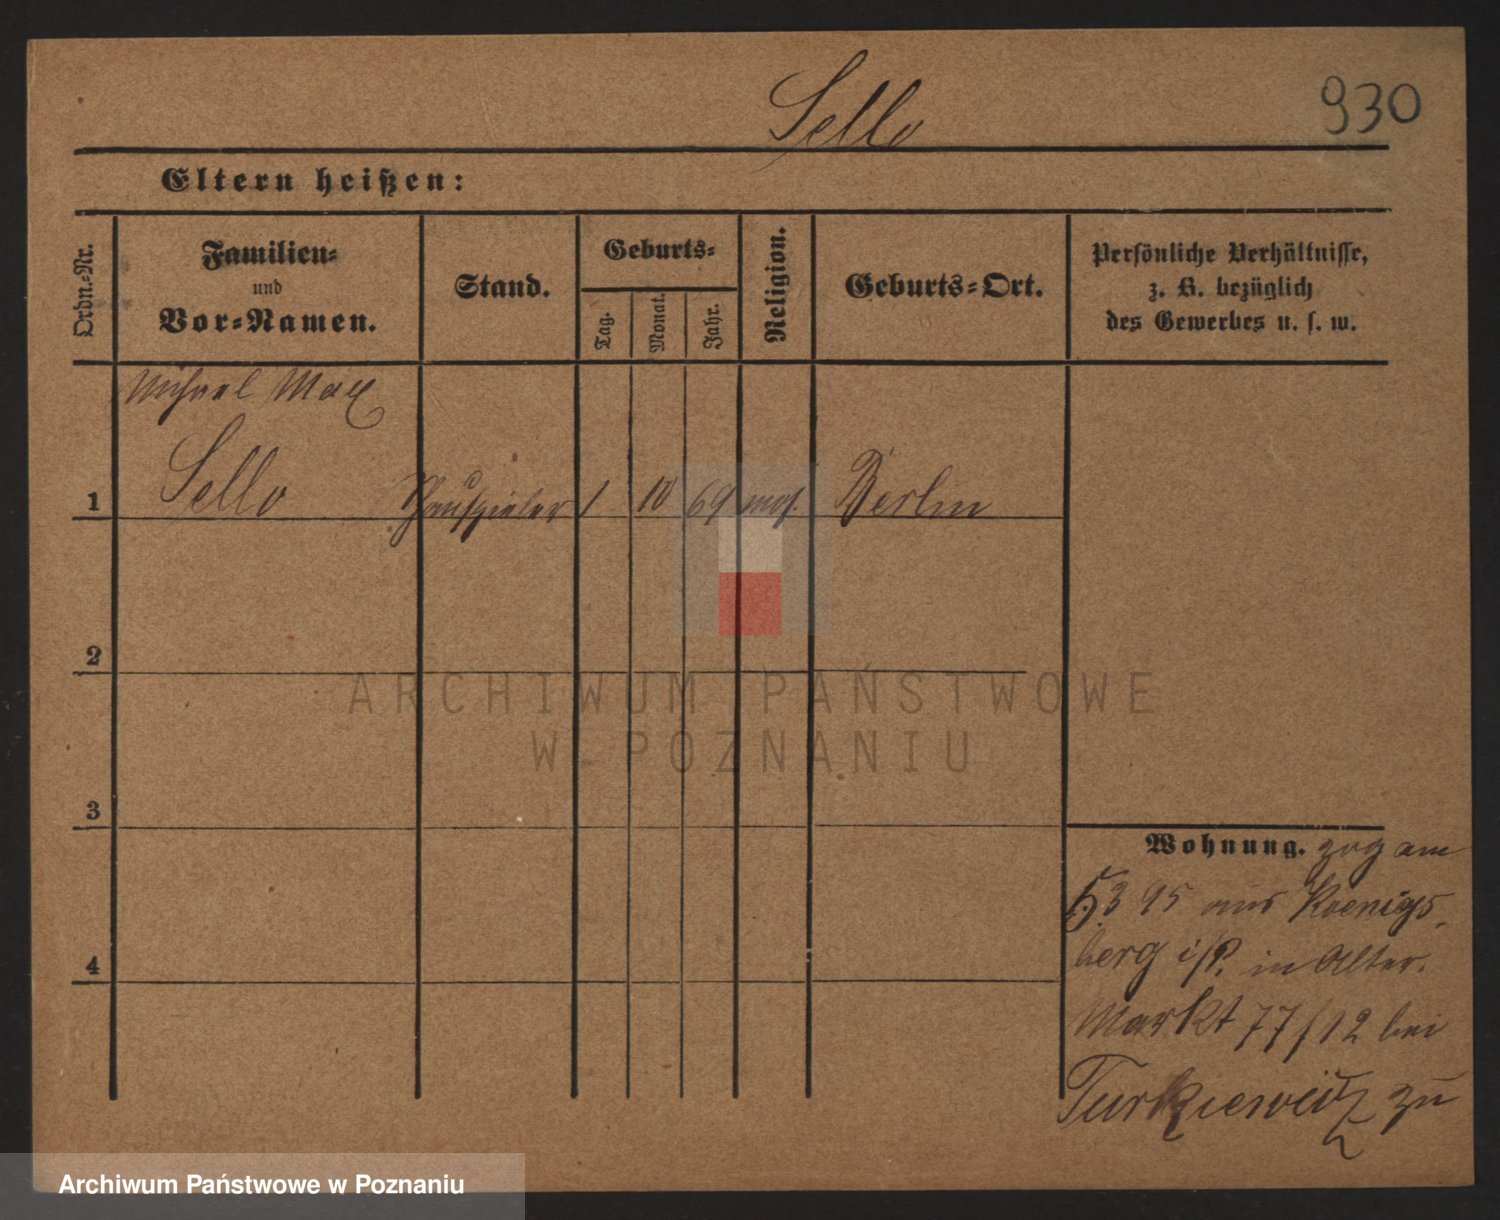 Sello
930
Eltern heißen:
Ordn.-Nr.
Familien-
und
Vor-Namen.
Stand.
Geburts-
Tag.
Monat.
Jahr.
Religion.
Geburts-Ort.
Persönliche Verhältnisse,
z. B. bezüglich
des Gewerbes u. s. w.
Michael Max
1 Sello Schauspieler 1 10 69 mos. Berlin
2
3
4
Wohnung. zog am
5.3 95 aus Koenigs-
berg i/P. in Alter.
Markt 77/12 bei
Turkiewicz zu
ARCHIWUM PAŃSTWOWE
W POZNANIU
Archiwum Państwowe w Poznaniu